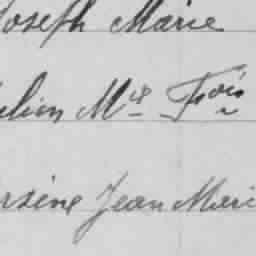 Joseph Marie
ulien Mie Frois
rsène Jean Mari